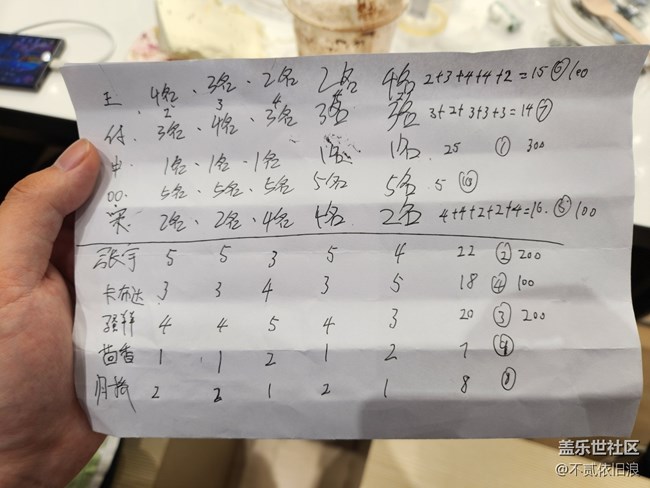 王. 4名. 3名. 2名 2名 4名 2+3+4+4+2=15 ⑥ 100
2 3 4
付. 3名. 4名. 3名 3名 3名 3+2+3+3+3=14 ⑦
申. 1名. 1名. 1名 1名 1名. 25 ① 300
00. 5名. 5名. 5名 5名 5名. 5 ⑩
宋. 2名. 2名. 4名 4名 2名 4+4+2+2+4=16. ⑤ 100
张宇 5 5 3 5 4 22 ② 200
卡布达 3 3 4 3 5 18 ④ 100
4 4 5 4 3 20 ③ 200
茴香 1 1 2 1 2 7 ⑨
2 2 1 2 1 8 ⑧
盖乐世社区
@不贰依旧浪